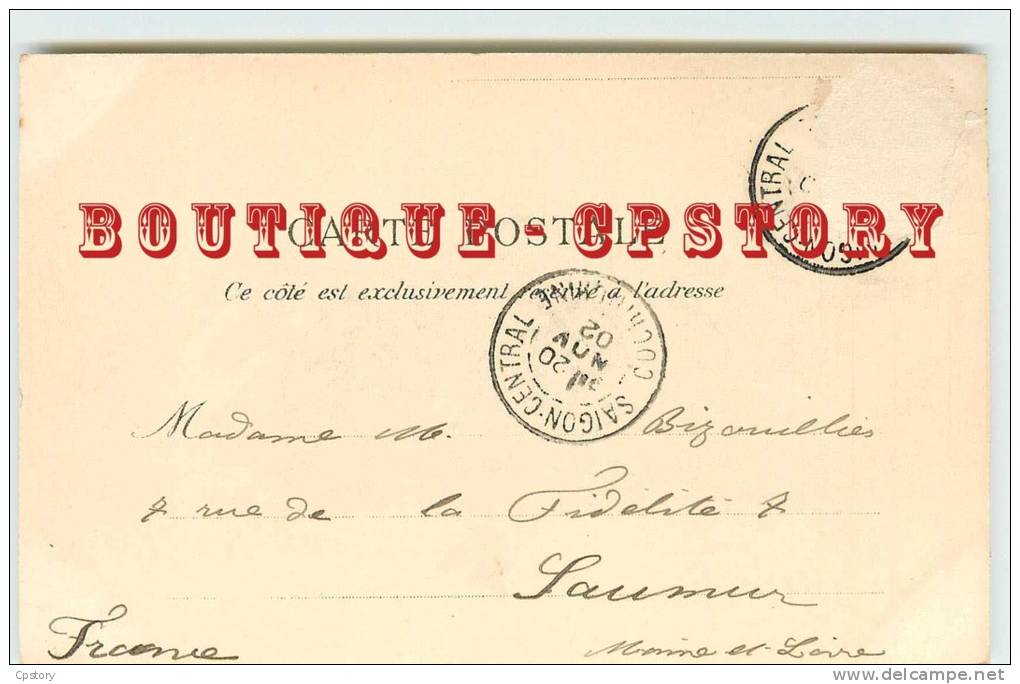 CARTE POSTALE
BOUTIQUE - CPSTORY
Ce côté est exclusivement réservé à l'adresse
SAIGON-CENTRAL COCHINCHINE
20
02
Madame M. Bizouillies
7 rue de la Fidélité 7
Saumur
France
Maine et Loire
Cpstory
delcampe.net